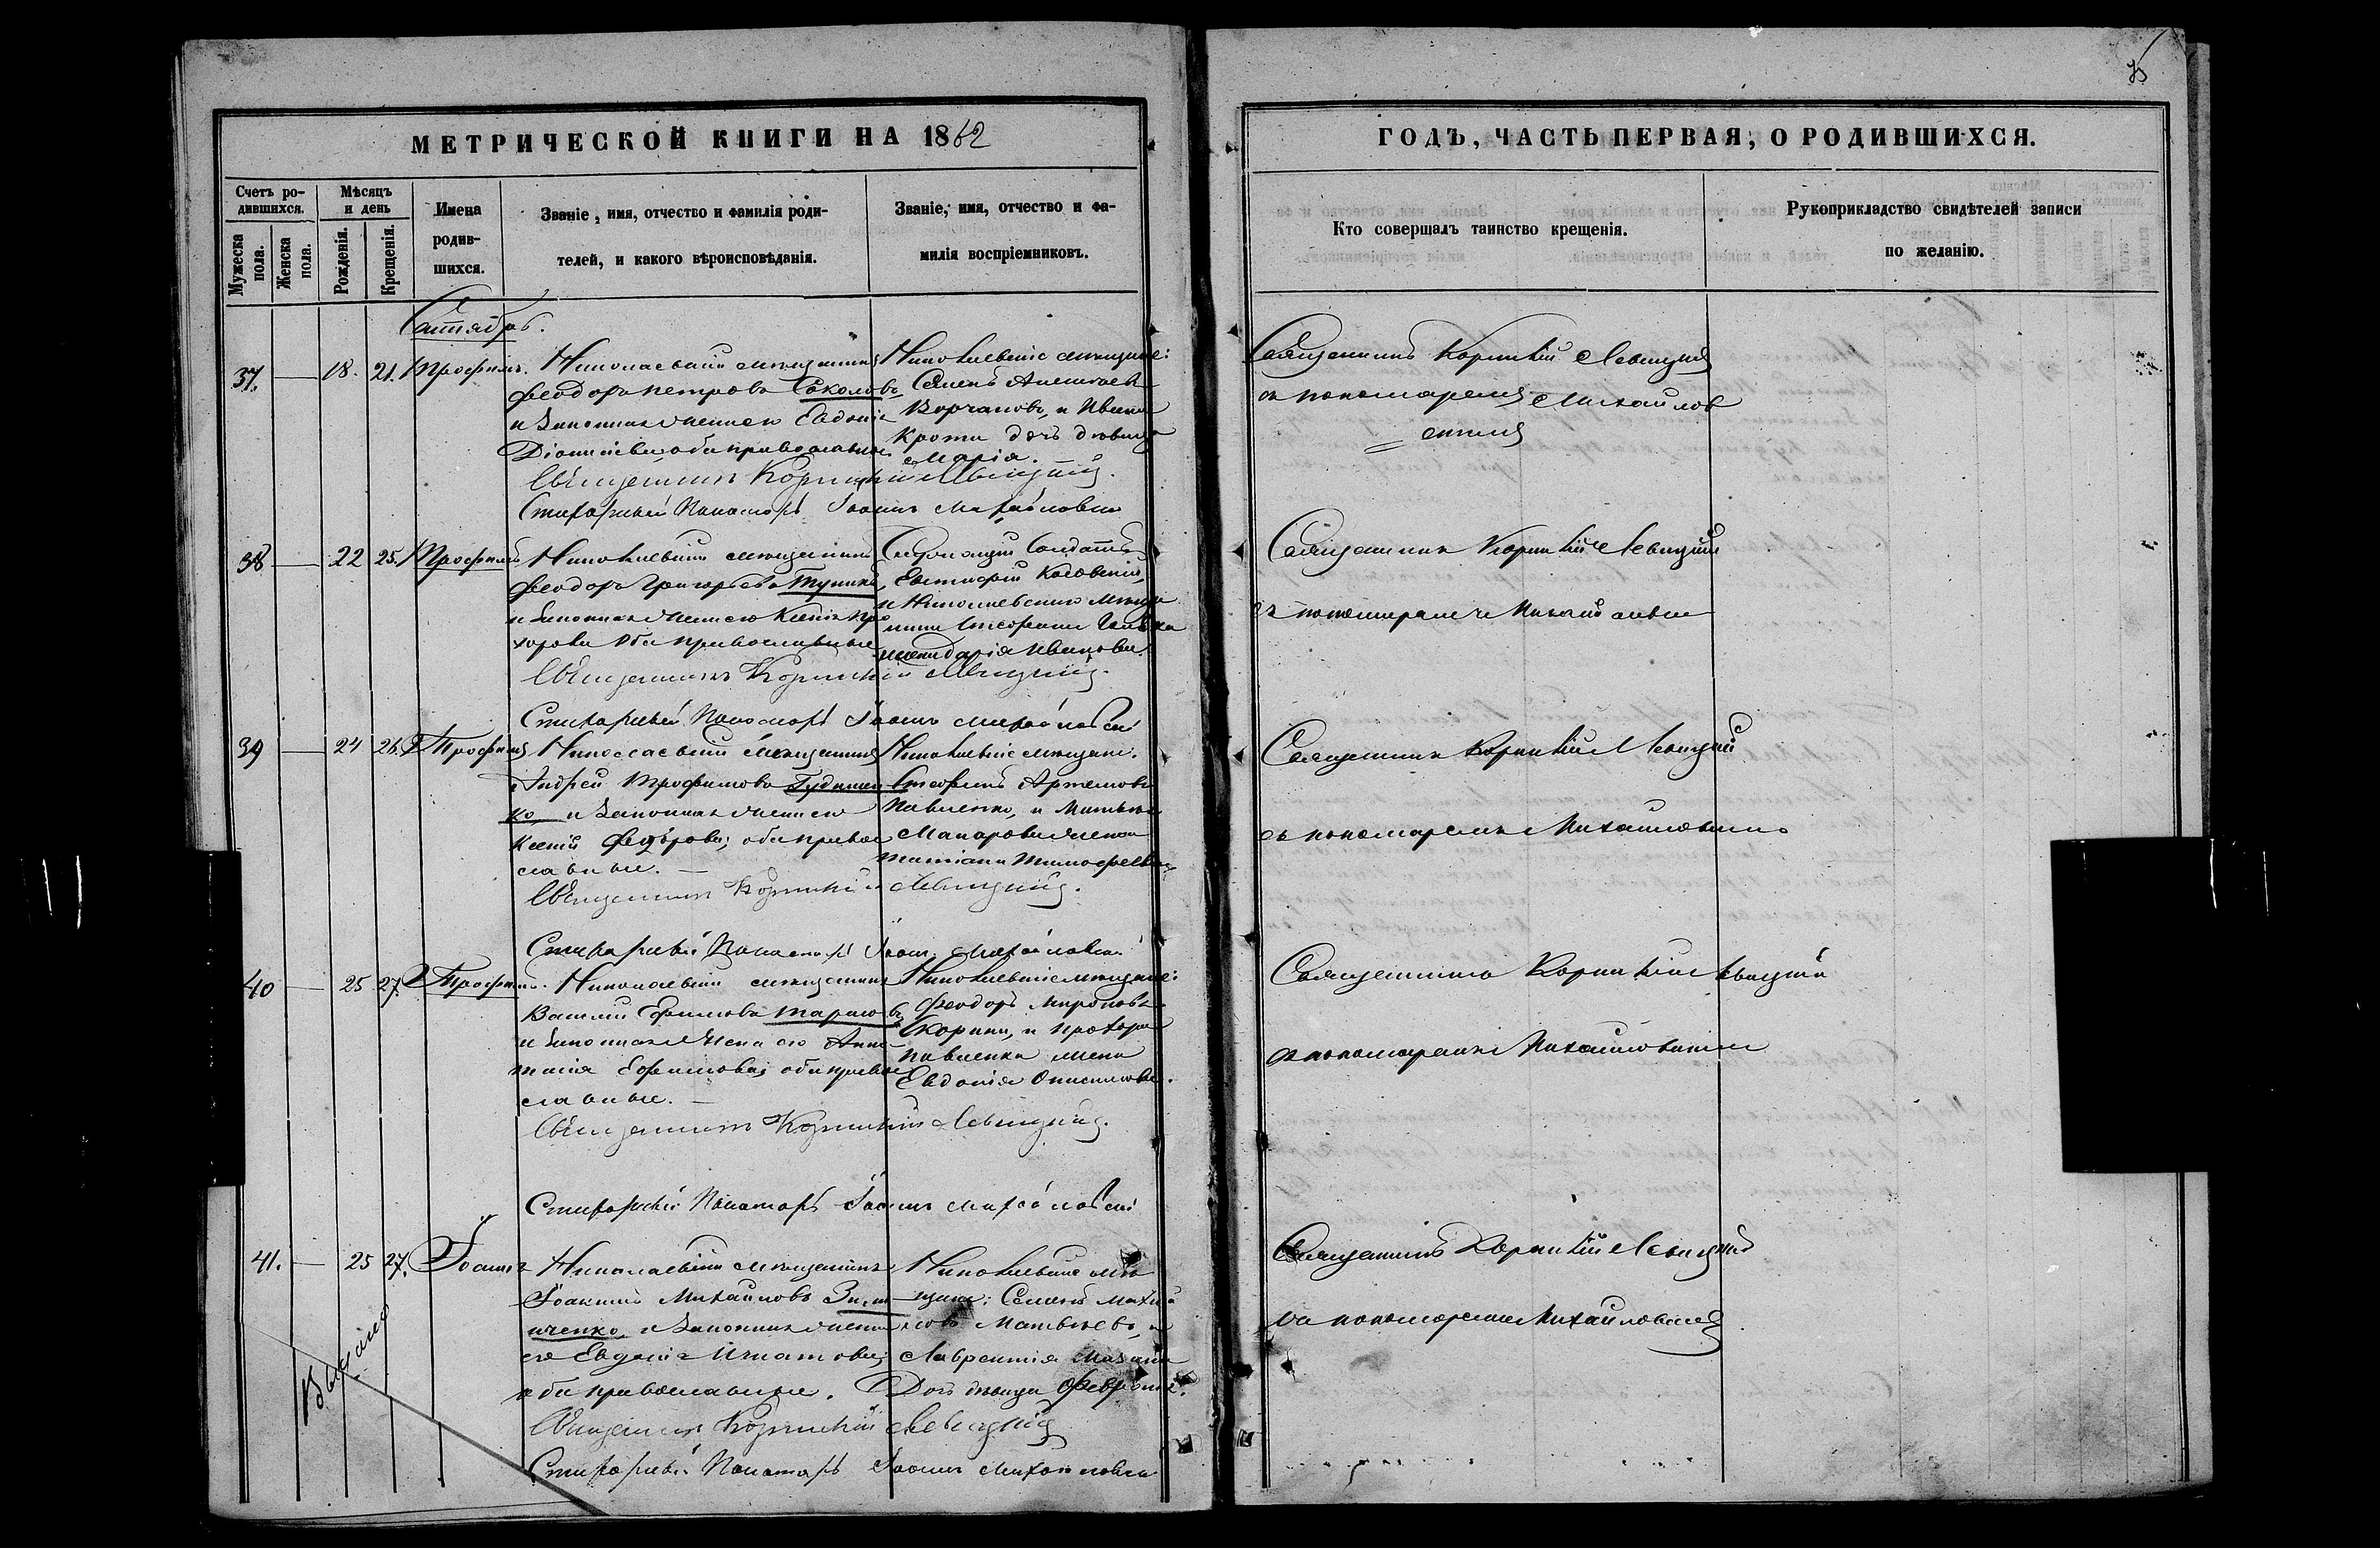 МЕТРИЧЕСКОЙ КНИГИ НА 1862
Счетъ ро-
дившихся.
Мужеска
пола.
Женска
пола.
Мѣсяцъ
и день
Рожденія.
Крещенія.
Имена
родив-
шихся.
Званіе, имя, отчество и фамилія роди-
телей, и какого вѣроисповѣданія.
Званіе, имя, отчество и фа-
милія воспріемниковъ.
37.
18.
21.
Трофимъ.
Николаевскій мѣщанинъ
Феодоръ Петровъ Соколовъ,
и законная жена его Евдокія
оба православные
Николаевскіе мѣщане:
Семенъ
дочь дѣвица
Марія.
Священникъ Корнилій Левицкій.
Стихарный Пономарь Іоаннъ Михайловскій
38
22
25.
Трофимъ
Николаевскій мѣщанинъ
Феодоръ Григорьевъ
и законная жена его Ксенія Про
хорова оба православные
Евтифій
и Николаевскаго мѣща
нина
жена Дарія Иванова.
Священникъ Корнилій Левицкій.
Стихарный Пономарь Іоаннъ Михайловскій
39
24
26.
Трофимъ
Николаевскій мѣщанинъ
Андрей Трофимовъ
ко и законная жена его
Ксенія Федорова, оба право
славные.
Николаевскіе мѣщане.
Стефанъ Артемовъ
Павленко, и Матвѣя
Макарова жена
Татіана Тимофеева
Священникъ Корнилій Левицкій.
Стихарный Пономарь Іоаннъ Михайловскій
40
25
27.
Трофимъ.
Николаевскій мѣщанинъ
Василій Ефимовъ Тарасовъ,
и законная жена его Анас-
тасія Ефимова, оба право
славные.
Николаевскіе мѣщане:
Феодоръ Мироновъ
и Прохора
Павленка жена
Евдокія
Священникъ Корнилій Левицкій.
Стихарный Пономарь Іоаннъ Михайловскій
41.
25
27.
Іоаннъ
Николаевскій мѣщанинъ
Іоакимъ Михайловъ
и законная жена
его Евдокія Игнатова,
оба православные.
Николаевскіе мѣ
щане: Семенъ
Матвѣевъ, и
Лаврентія
дочь дѣвица Февронія.
Священникъ Корнилій Левицкій
Стихарный Пономарь Іоаннъ Михайловскій
ГОДЪ, ЧАСТЬ ПЕРВАЯ, О РОДИВШИХСЯ.
Кто совершалъ таинство крещенія.
Рукоприкладство свидѣтелей записи
по желанію.
Священникъ Корнилій Левицкій
съ пономаремъ Михайлов
скимъ
Священникъ Корнилій Левицкій
съ пономаремъ Михайловскимъ
Священникъ Корнилій Левицкій
съ пономаремъ Михайловскимъ
Священникъ Корнилій Левицкій
съ пономаремъ Михайловскимъ
Священникъ Корнилій Левицкій
съ пономаремъ Михайловскимъ